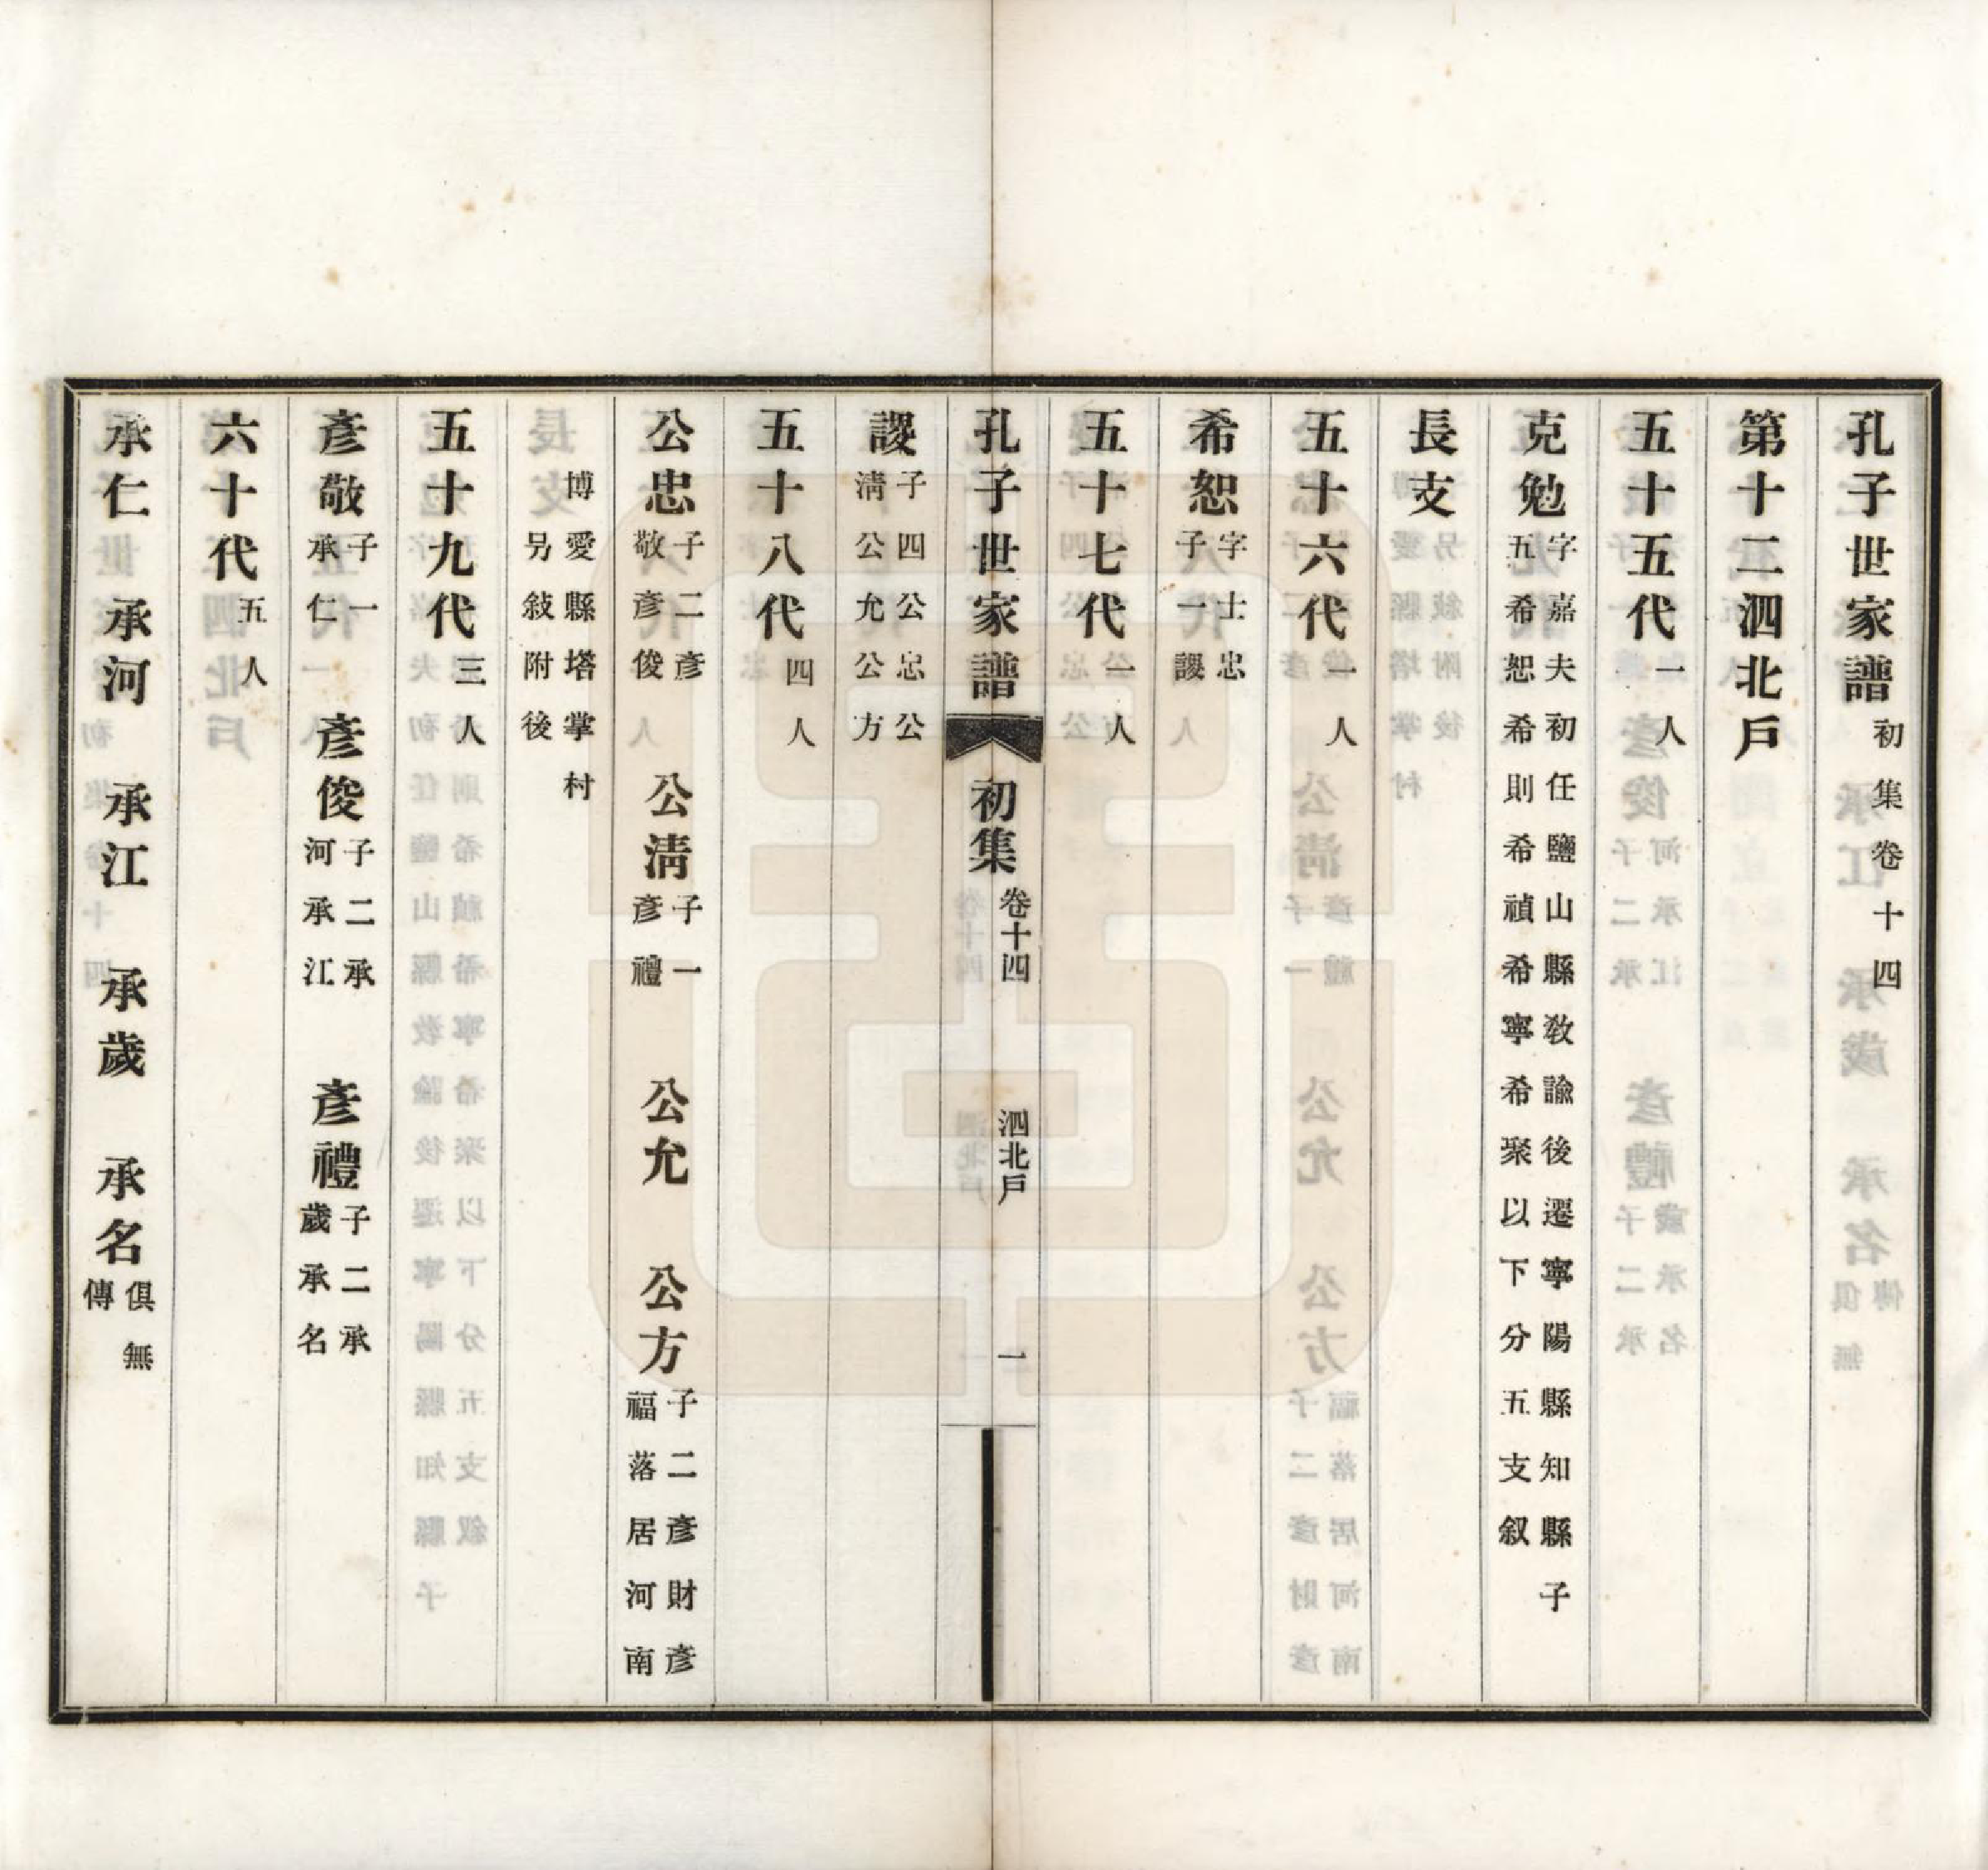 孔子世家譜初集卷十四
第十二泗北戶
五十五代一人
克勉字嘉夫初任鹽山縣教諭後遷寧陽縣知縣子五希恕希則希禎希寧希聚以下分五支叙
長支
五十六代一人
希恕字士忠子一謖
五十七代一人
孔子世家譜 初集 卷十四 泗北戶 一
謖子四公忠公淸公允公方
五十八代四人
公忠子二彥敬彥俊 公淸子一彥禮 公允 公方子二彥財彥福落居河南
博愛縣塔掌村另敍附後
五十九代三人
彥敬子一承仁 彥俊子二承河承江 彥禮子二承歲承名
六十代五人
承仁 承河 承江 承歲 承名俱無傳